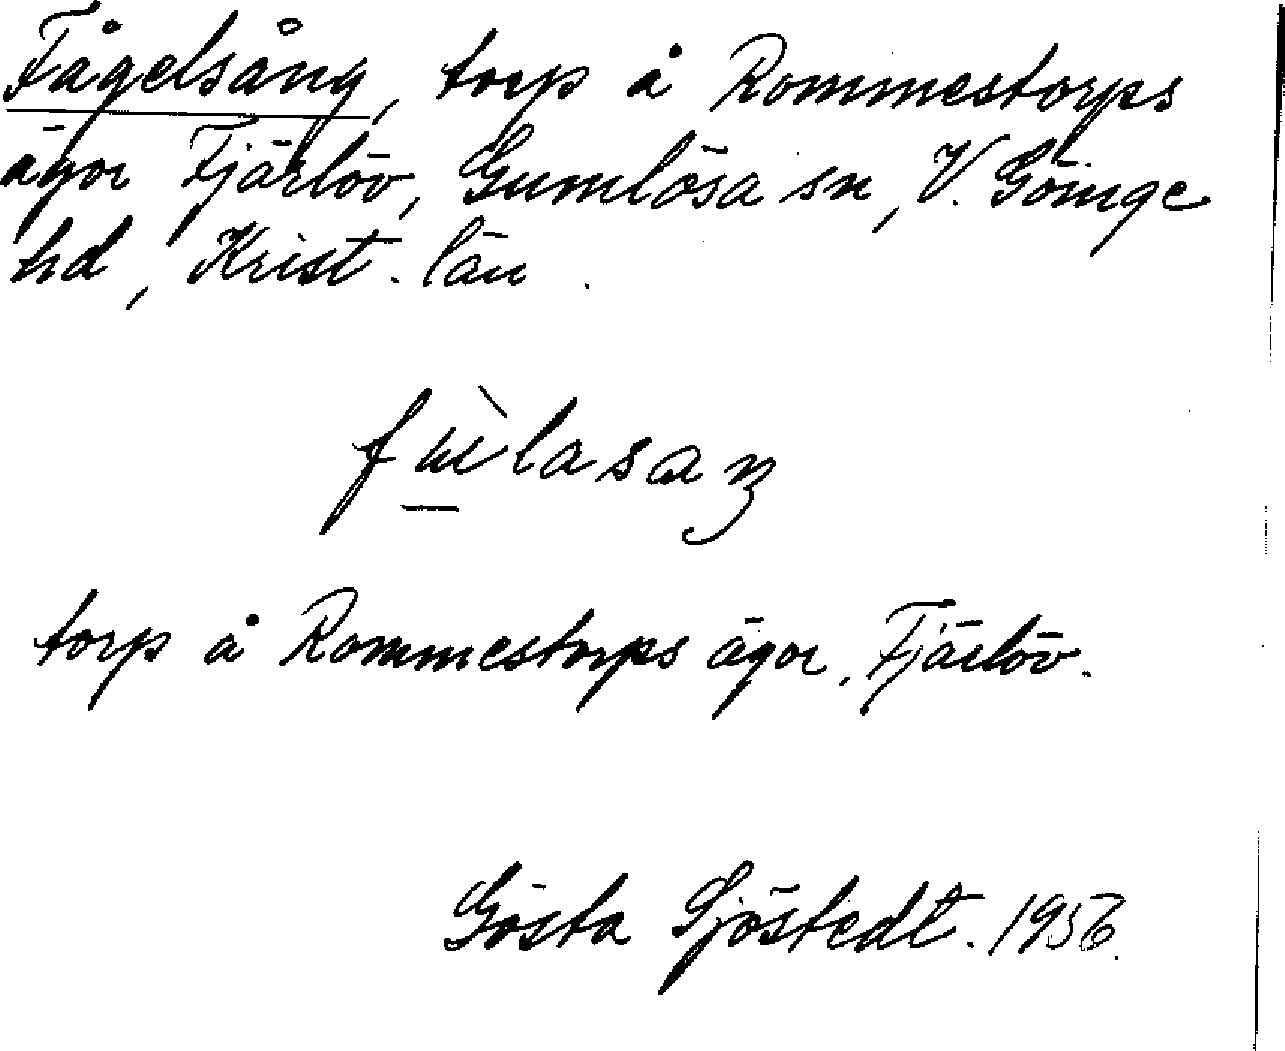 Fågelsång, torp å Rommestorps
ägor Fjärlöv, Gumlösa sn, V. Göinge
hd, Krist. län.
torp å Rommestorps ägor, Fjärlöv.
Gösta Sjöstedt. 1956.